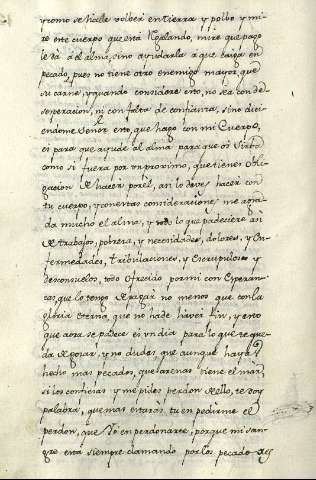 y como se ha de volber en tierra y polbo y mi-
re este cuerpo que está Regalando, mire que pago
le da al alma, sino ayudarla a que caiga en
pecado, pues no tiene otro enemigo mayor, que
su carne, y quando considere esto, no sea con de-
sesperacion, ni con falta de confianza, sino dici-
endome Señor esto, que hago con mi Cuerpo,
es para que ayude al alma para que os Sirba
como si fuera por un proximo, que tienes obli-
gacion de hacer por él, asi lo debes hacer con
tu cuerpo, y con estas consideraciones me agra-
da mucho el alma, y todo lo que padeciere asi
de trabajos, pobreza, y necesidades, dolores, y En-
fermedades, tribulaciones, y Escrupulos y
desconsuelos, todo ofrecido por mi con Esperan-
zas, que lo tengo de pagar no menos que con la
gloria Eterna, que no ha de haver fin, y esto
que aora se padece es un dia para lo que te que-
da de gozar, y no dudes que aunque hayas
hecho mas pecados, que arenas tiene el mar,
si los confiesas y me pides perdon de ello, te doy
palabra, que mas estarás tu en pedirme el
perdon, que Yo en perdonarte, porque mi san-
gre está siempre clamando por los pecadores